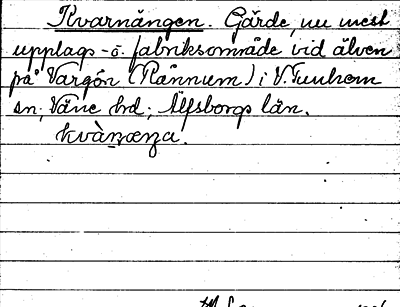 Kvarnängen. Gärde, nu mest
upplags- o. fabriksområde vid älven
på Vargön (Rånnum) i V. Tunhem
sn, Väne hd; Älfsborgs län.
kvàṇæŋa.